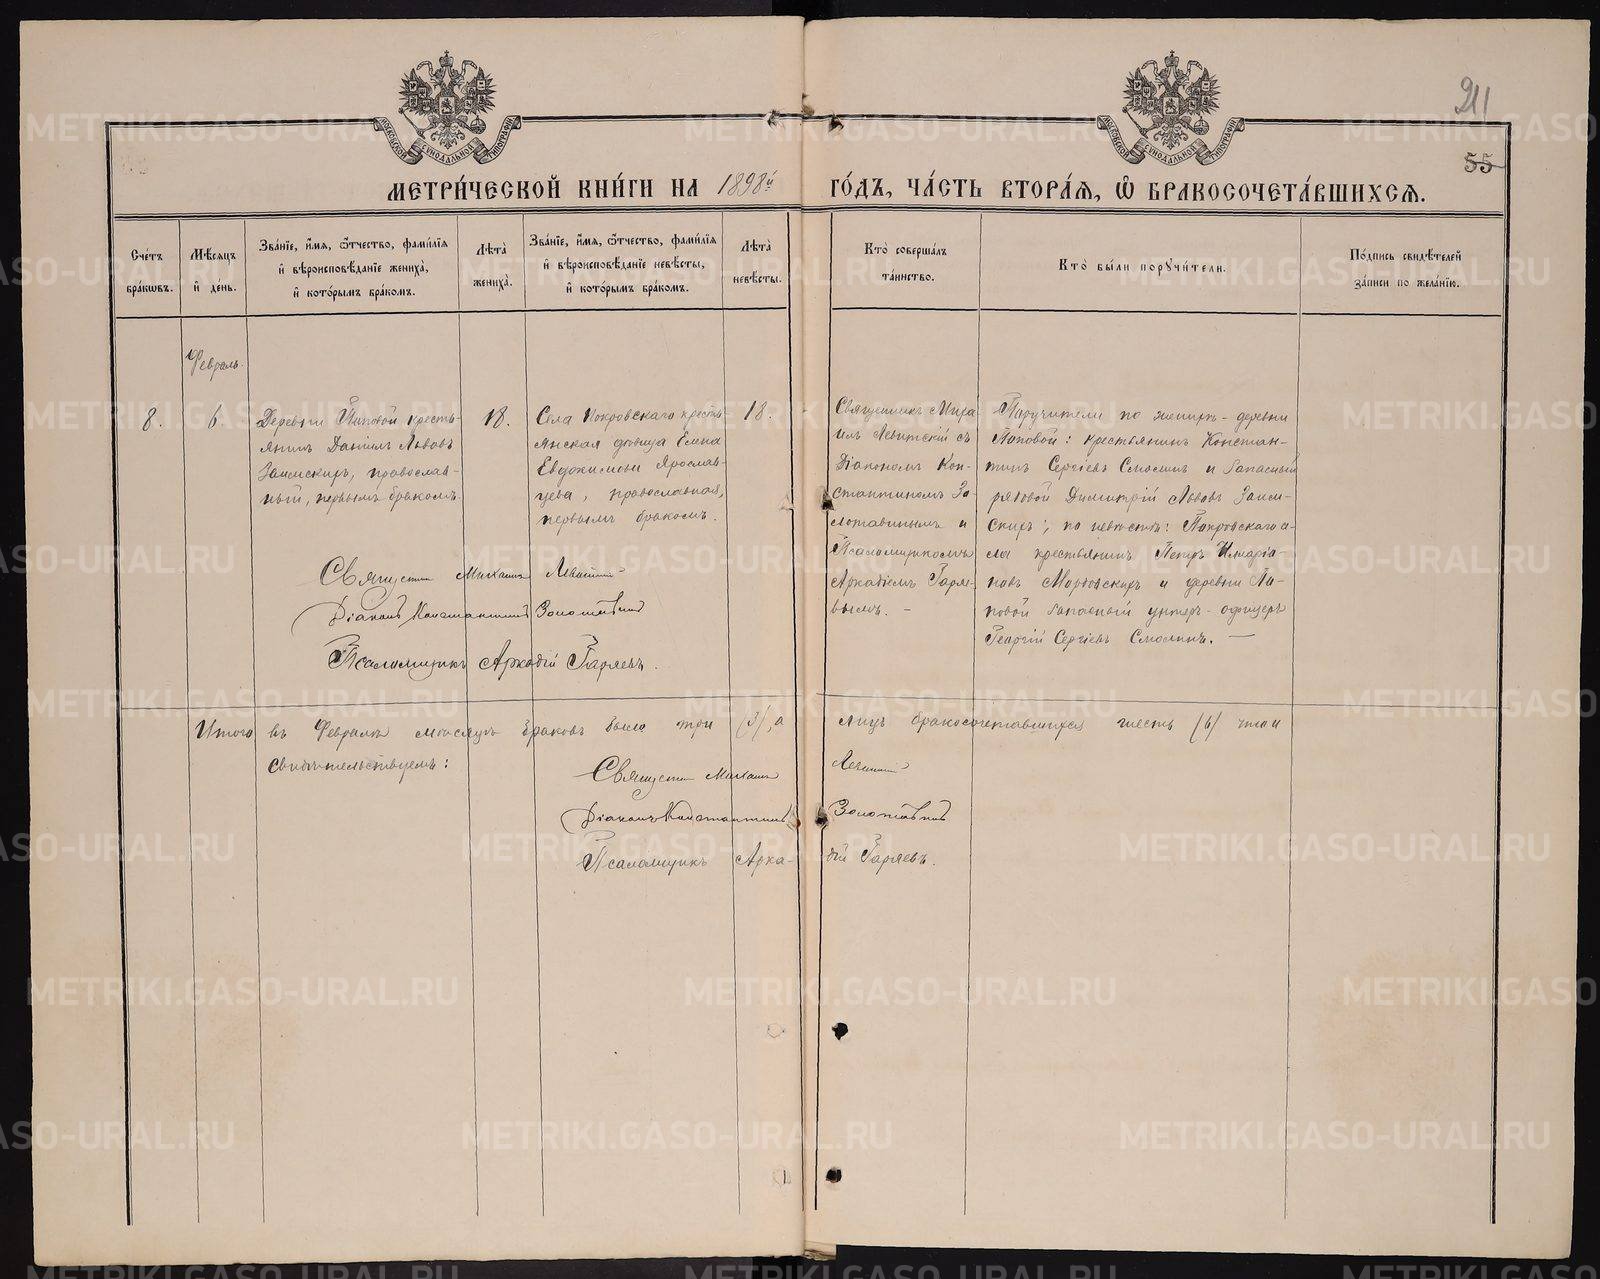 211
55
МОСКОВСКОЙ СѴНОДАЛЬНОЙ ТИПОГРАФІИ
МОСКОВСКОЙ СѴНОДАЛЬНОЙ ТИПОГРАФІИ
МЕТРИ́ЧЕСКОЙ КНИ́ГИ НА 1898й ГО́ДЪ, ЧА́СТЬ ВТОРА́Ѧ, Ѡ҆ БРАКОСОЧЕТА́ВШИХСѦ.
Сче́тъ
бра́кѡвъ.
Мѣ́сяцъ
и҆ де́нь.
Зва́нїе, и҆́мѧ, ѻ҆́тчество, фами́лїѧ
и҆ вѣроисповѣ́данїе жениха̀,
и҆ кото́рымъ бра́комъ.
Лѣта̀
жениха̀.
Зва́нїе, и҆́мѧ, ѻ҆́тчество, фами́лїѧ
и҆ вѣроисповѣ́данїе невѣ́сты,
и҆ кото́рымъ бра́комъ.
Лѣта̀
невѣ́сты.
Кто̀ соверша́лъ
та́инство.
Кто̀ бы́ли поручи́тели.
По́дпись свидѣ́телей
за́писи по жела́нїю.
Февраль.
8.
6
Деревни Паповой кресть-
янинъ Даніилъ Львовъ
Заимскихъ, православ-
ный, первымъ бракомъ.
18.
Села Покровскаго кресть-
янская дѣвица Елена
Евдокимова Ярослав-
цева, православная,
первымъ бракомъ.
18.
Священникъ Миха-
илъ Левитскій съ
Діакономъ Кон-
стантиномъ Зо-
лотавинымъ и
Псаломщикомъ
Аркадіемъ Гаряе-
вымъ. –
Поручители по женихѣ – деревни
Паповой: крестьянинъ Констан-
тинъ Сергіевъ Смолинъ и запасный
рядовой Димитрій Львовъ Заим-
скихъ; по невѣстѣ: Покровскаго се-
ла крестьянинъ Петръ Иларіо-
новъ Мордовскихъ и деревни Па-
повой запасный унтеръ-офицеръ
Георгій Сергіевъ Смолинъ. —
Священникъ Михаилъ Левитскій
Діаконъ Константинъ Золотавинъ
Псаломщикъ Аркадій Гаряевъ.
Итого въ Февралѣ мѣсяцѣ браковъ было три (3), а лицъ бракосочетавшихся шесть (6) что и
свидѣтельствуемъ:
Священникъ Михаилъ Левитскій
Діаконъ Константинъ Золотавинъ
Псаломщикъ Аркадій Гаряевъ.
METRIKI.GASO-URAL.RU